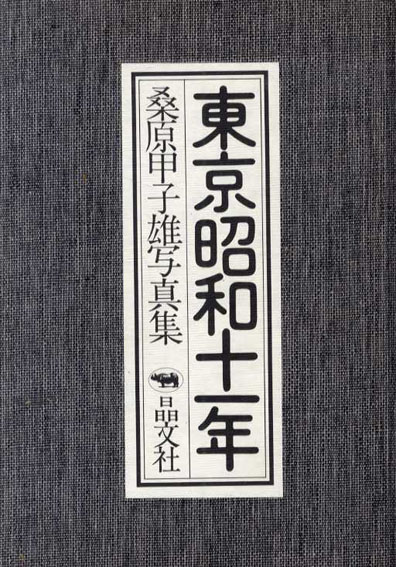 東京昭和十一年
桑原甲子雄写真集
晶文社